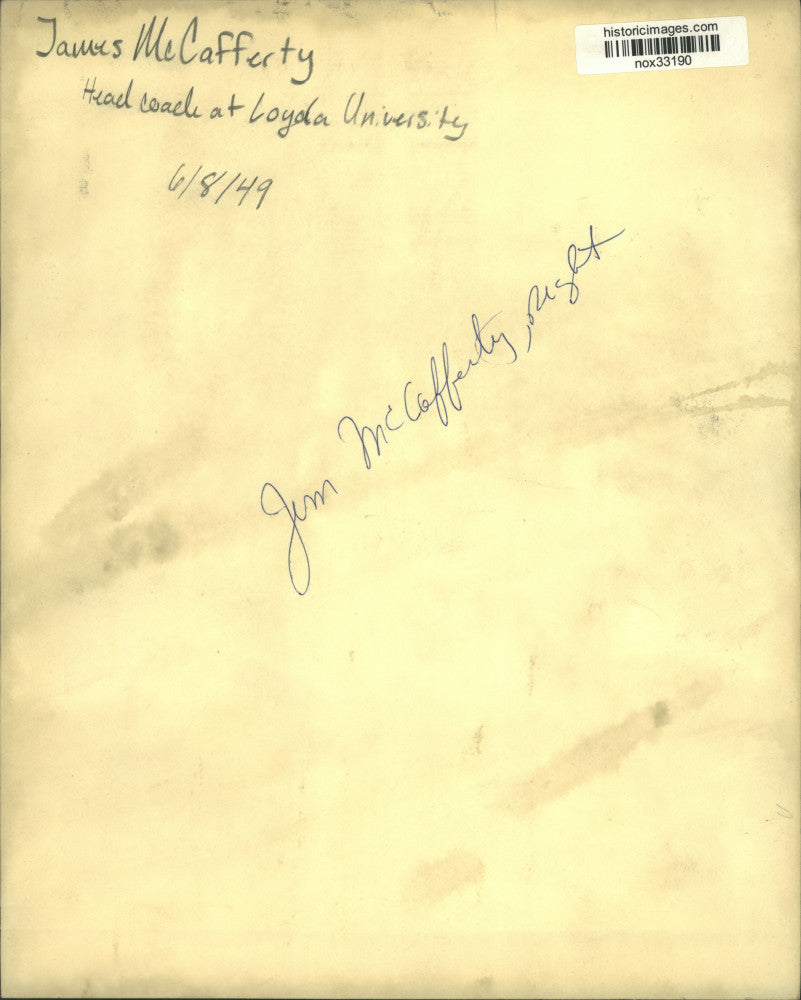 James McCafferty
Head coach at Loyola University
6/8/49
historicimages.com
nox33190
Jim McCafferty, right